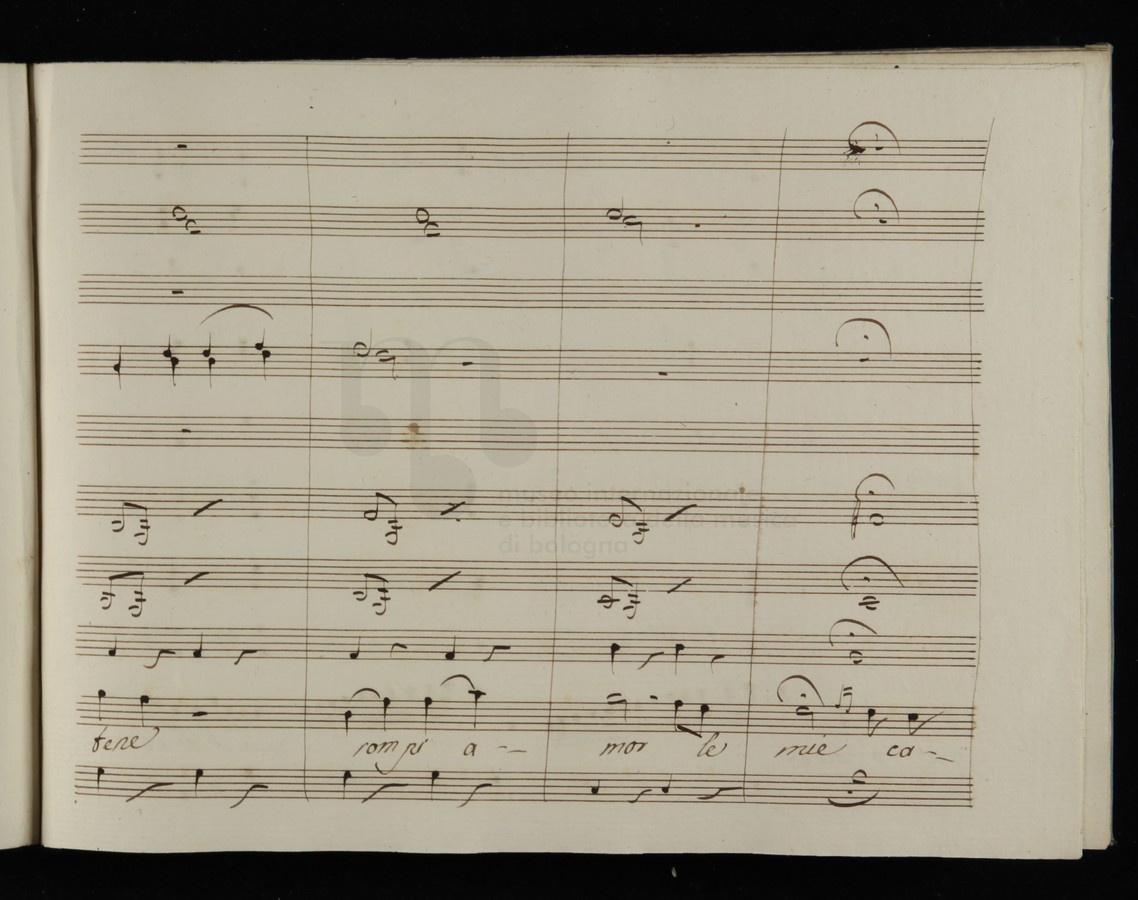 museo internazionale
e biblioteca della musica
di bologna
tene rompi a - - mor le mie ca - -